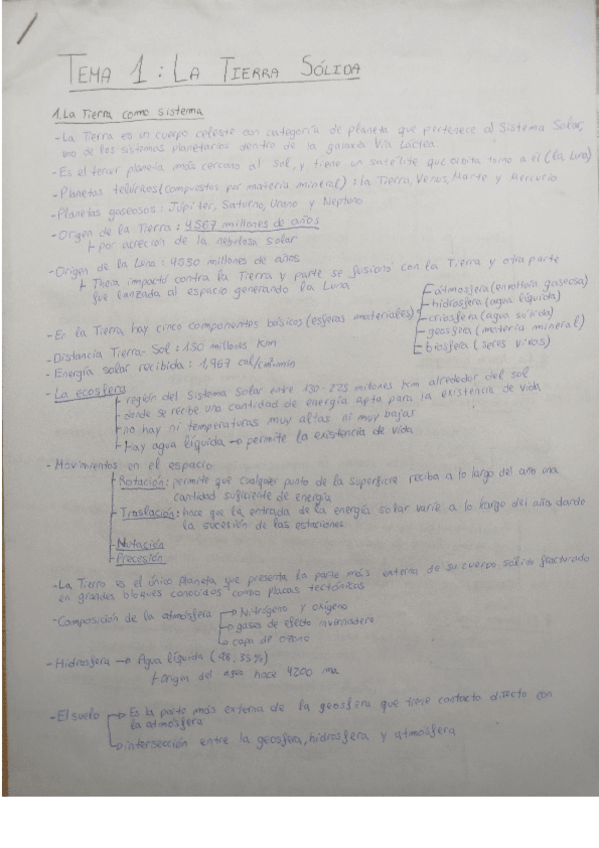 TEMA 1: LA TIERRA SÓLIDA
1. La Tierra como sistema
- La Tierra es un cuerpo celeste con categoría de planeta que pertenece al Sistema Solar,
uno de los sistemas planetarios dentro de la galaxia Vía Láctea.
- Es el tercer planeta más cercano al Sol, y tiene un satélite que orbita torno a él (la Luna)
- Planetas telúricos (compuestos por materia mineral): la Tierra, Venus, Marte y Mercurio
- Planetas gaseosos: Júpiter, Saturno, Urano y Neptuno
- Origen de la Tierra: 4567 millones de años
↳ por acreción de la nebulosa solar
- Origen de la Luna: millones de años
↳ Theia impactó contra la Tierra y parte se fusionó con la Tierra y otra parte
fue lanzada al espacio generando la Luna
- En la Tierra hay cinco componentes básicos (esferas materiales)
atmósfera (envoltura gaseosa)
hidrosfera (agua líquida)
criosfera (agua sólida)
geosfera (materia mineral)
biosfera (seres vivos)
- Distancia Tierra-Sol: 150 millones Km
- Energía solar recibida: 1,967 cal/cm²·min
- La ecosfera
región del Sistema Solar entre 130-225 millones km alrededor del sol
donde se recibe una cantidad de energía apta para la existencia de vida
no hay ni temperaturas muy altas ni muy bajas
hay agua líquida → permite la existencia de vida
- Movimientos en el espacio:
Rotación: permite que cualquier punto de la superficie reciba a lo largo del año una
cantidad suficiente de energía
Traslación: hace que la entrada de la energía solar varíe a lo largo del año dando
la sucesión de las estaciones
Nutación
Precesión
- La Tierra es el único planeta que presenta la parte más externa de su cuerpo sólido fracturado
en grandes bloques conocidos como placas tectónicas
- Composición de la atmósfera → Nitrógeno y oxígeno
→ gases de efecto invernadero
→ capa de ozono
- Hidrosfera → Agua líquida
↳ Origen del agua hace 4200 ma
- El suelo → Es la parte más externa de la geosfera que tiene contacto directo con
la atmósfera
→ intersección entre la geosfera, hidrosfera y atmósfera